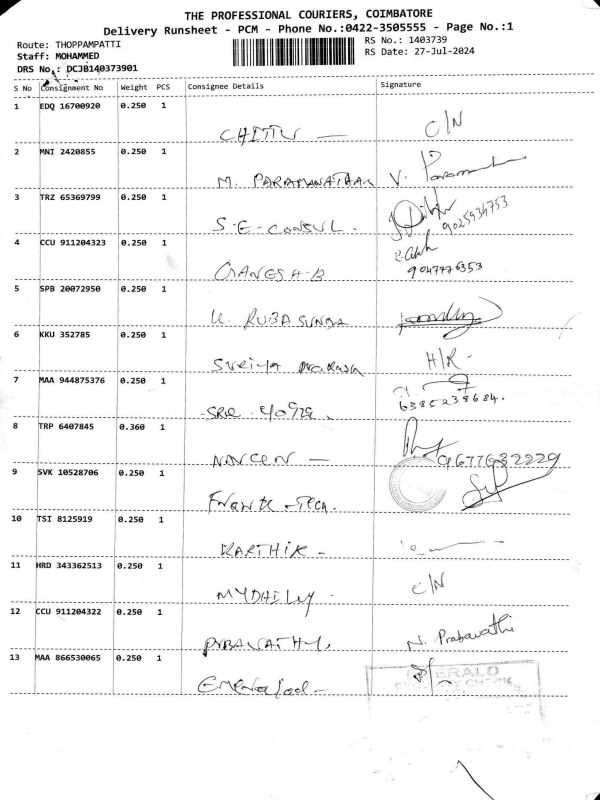 THE PROFESSIONAL COURIERS, COIMBATORE
Delivery Runsheet - PCM - Phone No.:0422-3505555 - Page No.:1
Route: THOPPAMPATTI RS No.: 1403739
Staff: MOHAMMED RS Date: 27-Jul-2024
DRS No.: DCJB140373901
S No Consignment No Weight PCS Consignee Details Signature
1 EDQ 16700920 0.250 1
CHITTU — C/N
2 MNI 2420855 0.250 1
M. PARAMANATHAN V.
3 TRZ 65369799 0.250 1
S-E-CONSUL.
4 CCU 911204323 0.250 1
GANESH-B 9047776353
5 SPB 20072950 0.250 1
K. RUBA SUNDA
6 KKU 352785 0.250 1
H/R -
7 MAA 944875376 0.250 1
SREE
8 TRP 6407845 0.360 1
NAVEEN — 9677632229
9 SVK 10528706 0.250 1
10 TSI 8125919 0.250 1
KARTHIK -
11 HRD 343362513 0.250 1
MYDHILY. C/N
12 CCU 911204322 0.250 1
N. Prabavathi
13 MAA 866530065 0.250 1
EMERALD